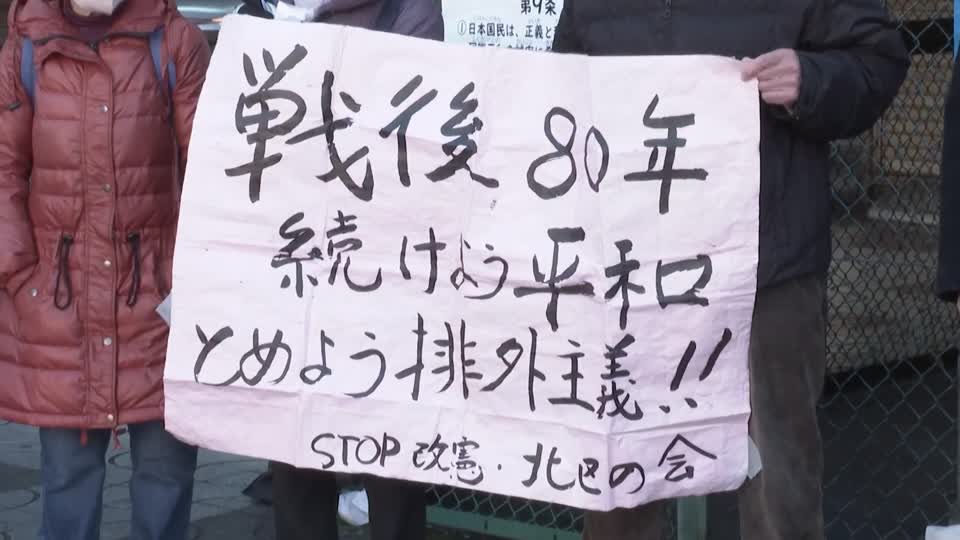 第9条
①日本国民は、正義と
戦後80年
続けよう平和
とめよう排外主義!!
STOP改憲・北区の会